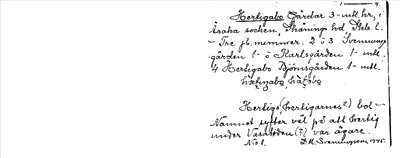 Hertigabo Gårdar 3 - mtl hr, i
Asaka socken, Skånings hd, Skbs. l.
- Tre fb. nummer. 2 o 3 Svenungs
gården 1 - o Karlsgården 1 - mtl.
4 Hertigabo Björnsgården 1 - mtl.
Hertigs (hertigarnes?) bol -
Namnet syftar väl på att hertig
under Vasatiden (?) var ägare.
No 1.